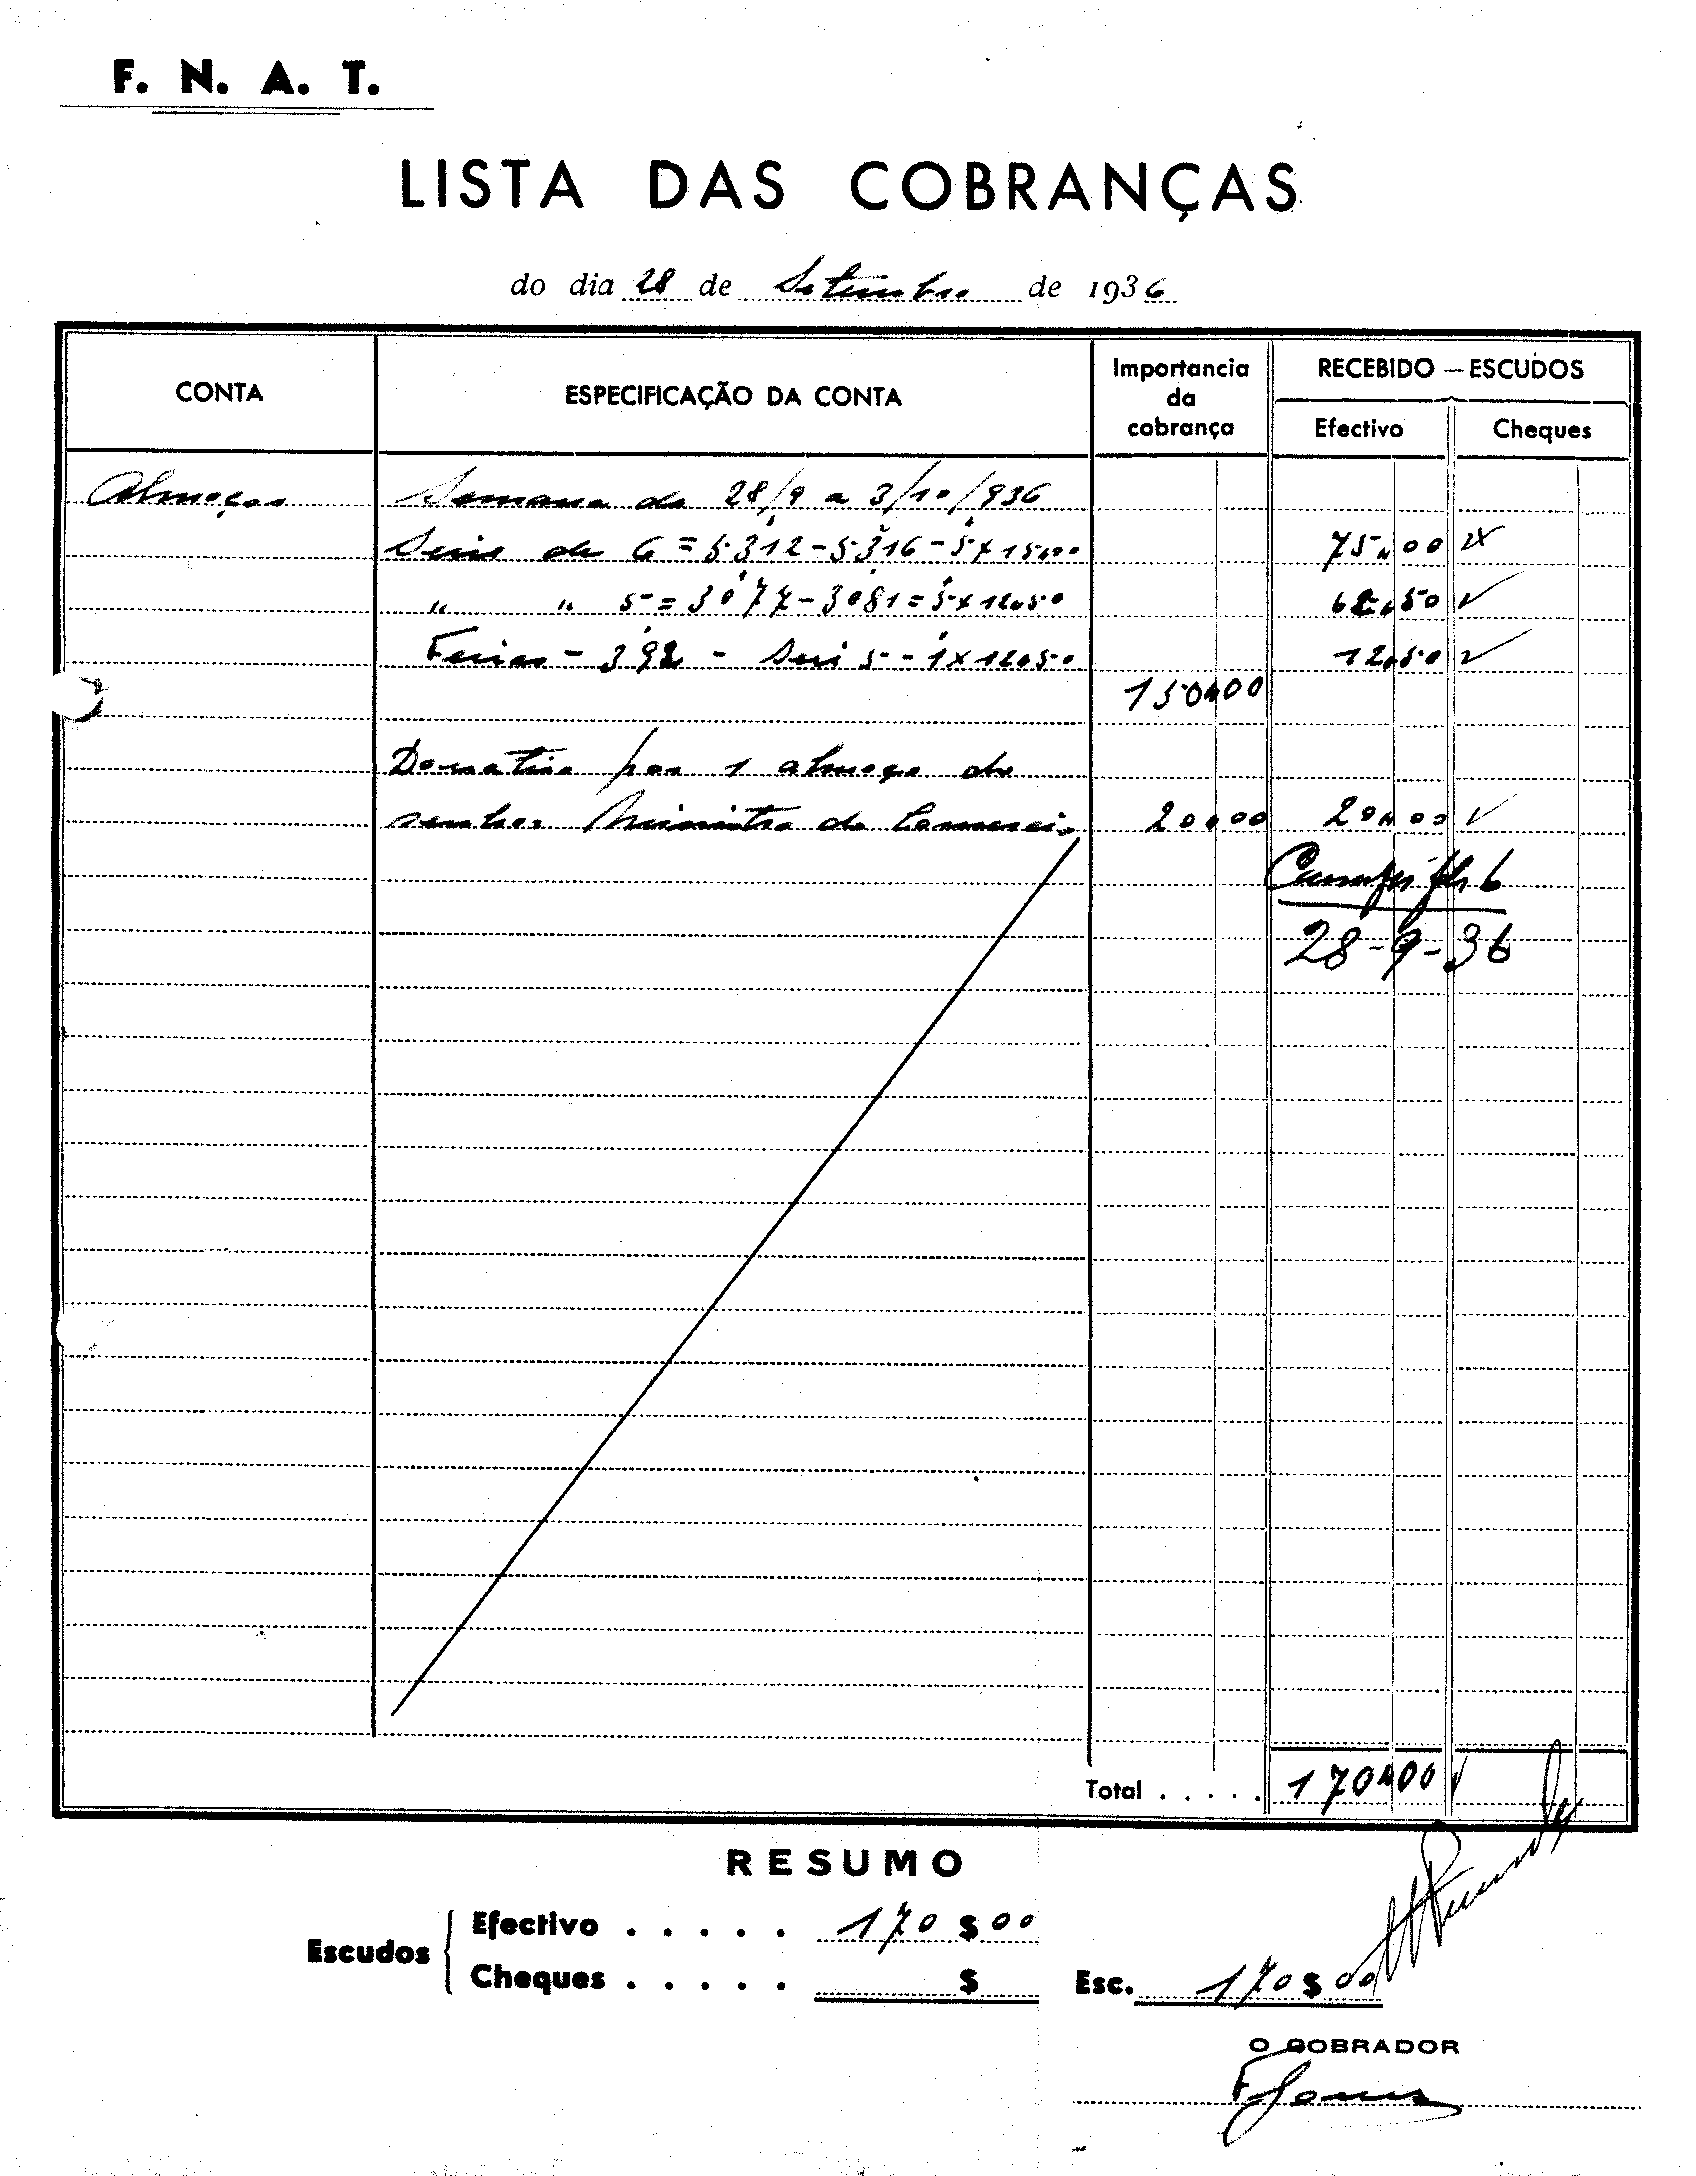 F. N. A. T.
LISTA DAS COBRANÇAS
do dia 28 de Setembro de 1936
CONTA
ESPECIFICAÇÃO DA CONTA
Importancia da cobrança
RECEBIDO — ESCUDOS
Efectivo
Cheques
Almoços Semana de 28/9 a 3/10/936
Série de 6 = 5.312 - 5.316 - 5 x 15,00 75,00
" " 5 = 3077 - 3081 = 5 x 12,50 62,50
Ferias - 392 - Seri 5 - 1 x 12,50 12,50
150,00
Donativo por 1 almoço do
senhor Ministro do Comercio 20,00 20,00
28-9-36
Total . . . . . 170,00
RESUMO
Escudos
Efectivo . . . . . 170 $ 00
Cheques . . . . . $
Esc. 170 $ 00
O COBRADOR